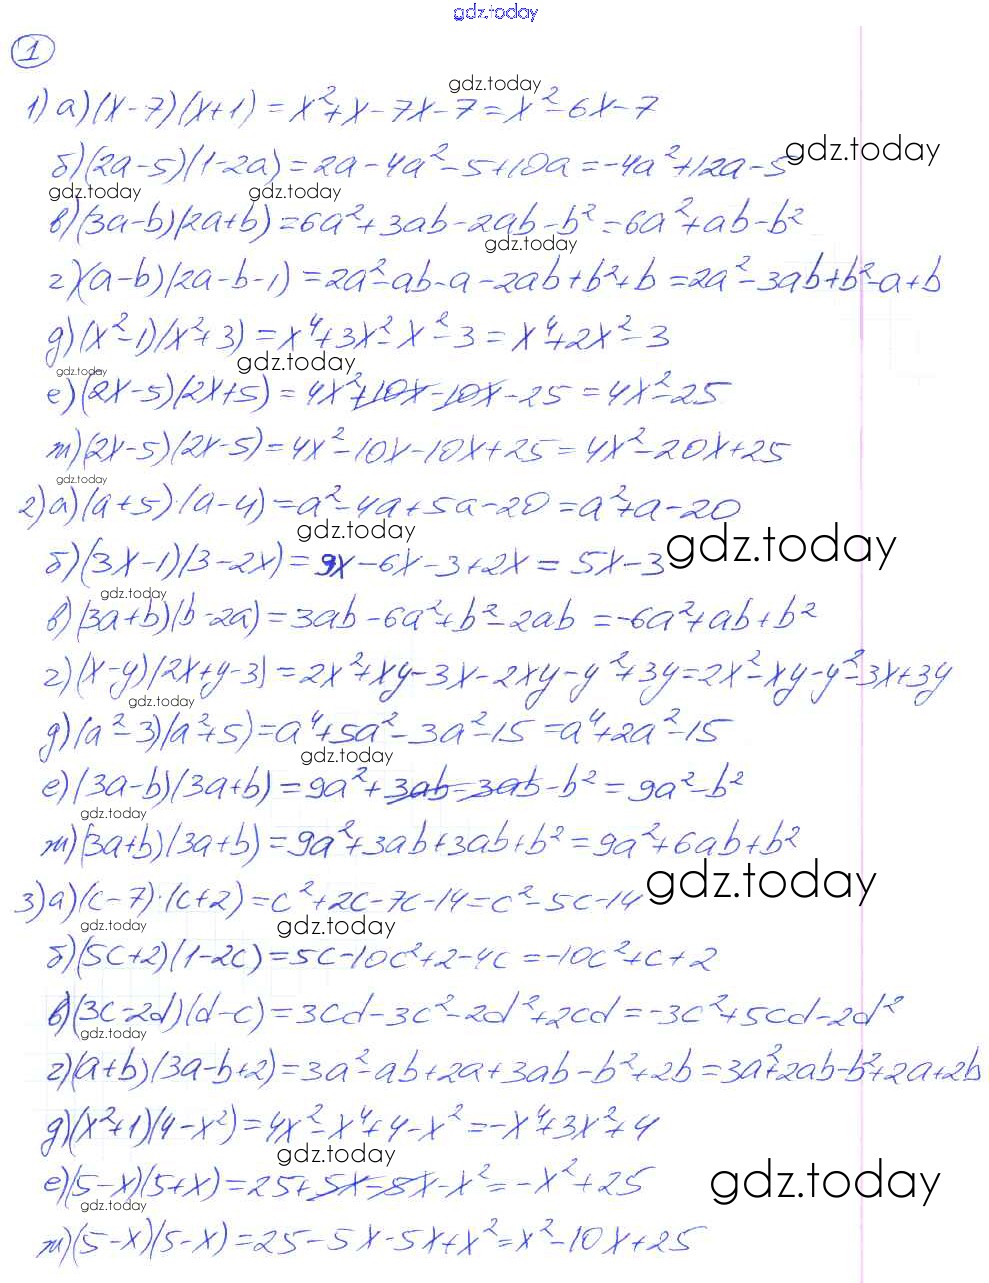 gdz.today
1
gdz.today
1) а) (x-7)(x+1) = x²+x-7x-7 = x²-6x-7
gdz.today
б) (2a-5)(1-2a) = 2a-4a²-5+10a = -4a²+12a-5
gdz.today gdz.today
в) (3a-b)(2a+b) = 6a²+3ab-2ab-b² = 6a²+ab-b²
gdz.today
г) (a-b)(2a-b-1) = 2a²-ab-a-2ab+b²+b = 2a²-3ab+b²-a+b
д) (x²-1)(x²+3) = x⁴+3x²-x²-3 = x⁴+2x²-3
gdz.today gdz.today
е) (2x-5)(2x+5) = 4x²+10x-10x-25 = 4x²-25
ж) (2x-5)(2x-5) = 4x²-10x-10x+25 = 4x²-20x+25
gdz.today
2) а) (a+5)·(a-4) = a²-4a+5a-20 = a²+a-20
gdz.today gdz.today
б) (3x-1)(3-2x) = 9x-6x-3+2x = 5x-3
gdz.today
в) (3a+b)(b-2a) = 3ab-6a²+b²-2ab = -6a²+ab+b²
г) (x-y)(2x+y-3) = 2x²+xy-3x-2xy-y²+3y = 2x²-xy-y²-3x+3y
gdz.today
д) (a²-3)(a²+5) = a⁴+5a²-3a²-15 = a⁴+2a²-15
gdz.today
е) (3a-b)(3a+b) = 9a²+3ab-3ab-b² = 9a²-b²
gdz.today
ж) (3a+b)(3a+b) = 9a²+3ab+3ab+b² = 9a²+6ab+b²
gdz.today
3) а) (c-7)·(c+2) = c²+2c-7c-14 = c²-5c-14
gdz.today gdz.today
б) (5c+2)(1-2c) = 5c-10c²+2-4c = -10c²+c+2
в) (3c-2d)(d-c) = 3cd-3c²-2d²+2cd = -3c²+5cd-2d²
gdz.today
г) (a+b)(3a-b+2) = 3a²-ab+2a+3ab-b²+2b = 3a²+2ab-b²+2a+2b
д) (x²+1)(4-x²) = 4x²-x⁴+4-x² = -x⁴+3x²+4
gdz.today gdz.today
е) (5-x)(5+x) = 25+5x-5x-x² = -x²+25
gdz.today
ж) (5-x)(5-x) = 25-5x-5x+x² = x²-10x+25